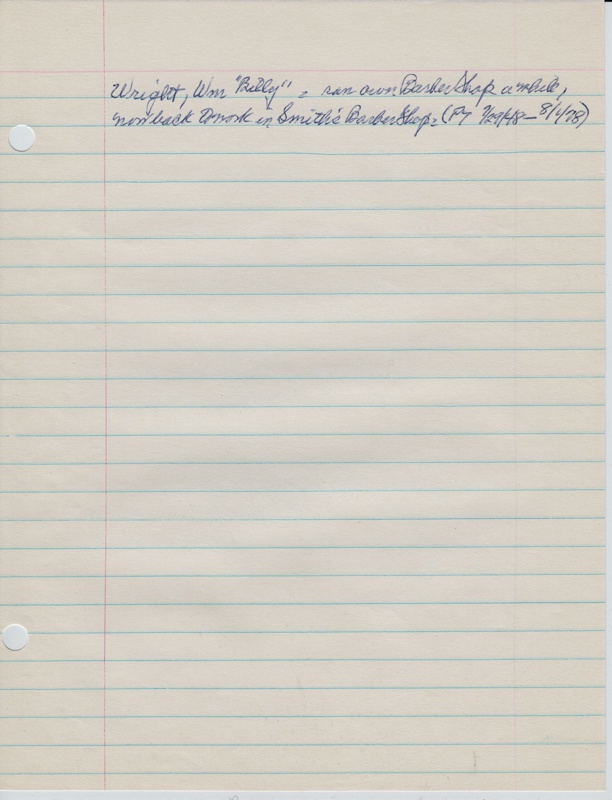 Wright, Wm "Billy" = ran own Barber Shop awhile,
now back to work in Smith's Barber Shop. (P4 7/29/48 - 8/1/78)